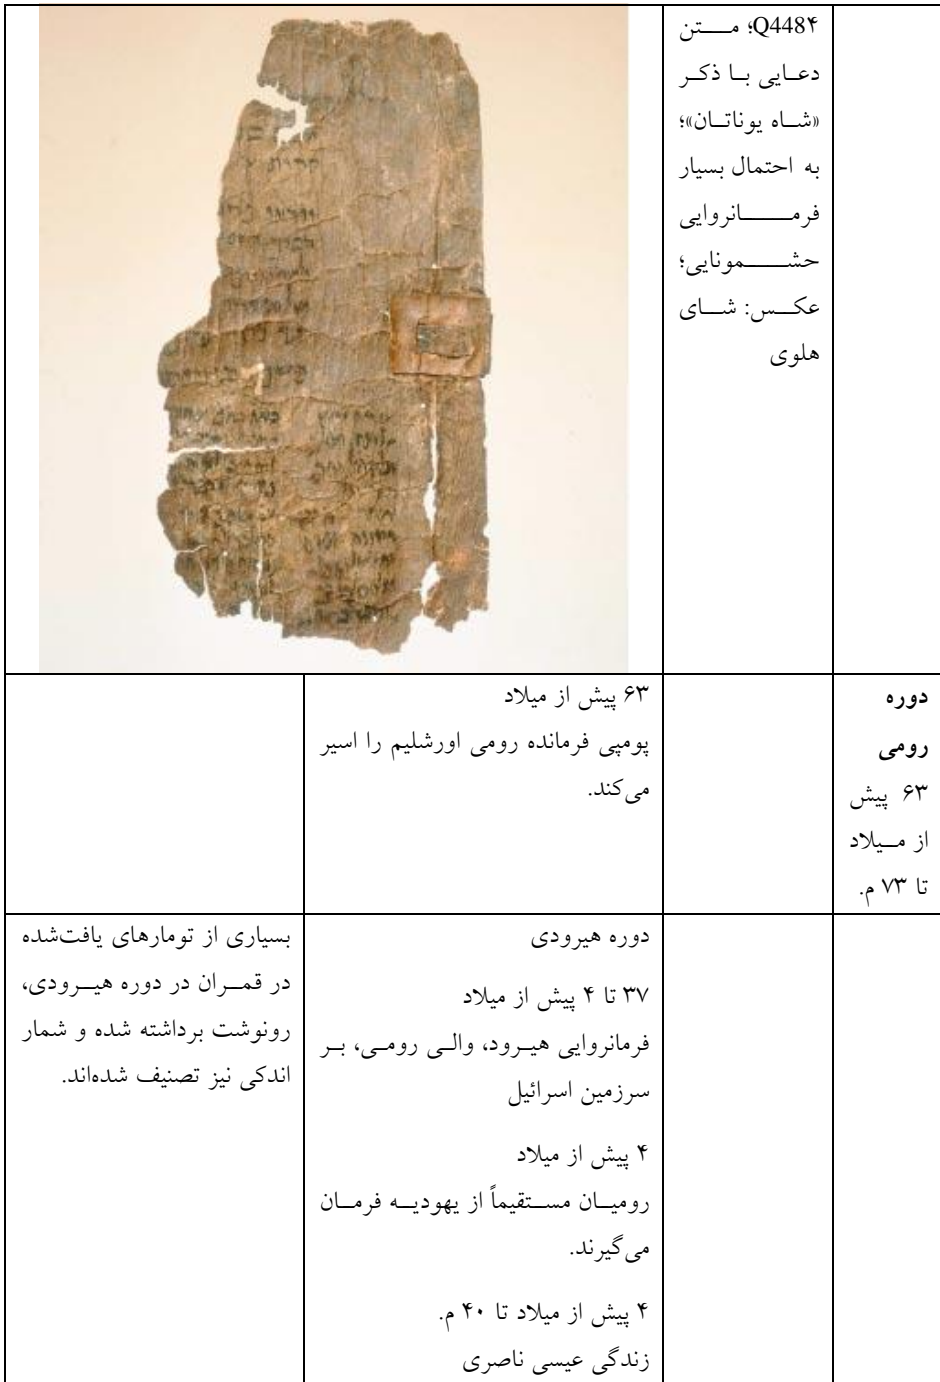 Q448۴؛ متن
دعایی با ذکر
«شاه یوناتان»؛
به احتمال بسیار
فرمانروایی
حشمونایی؛
عکس: شای
هلوی
دوره
رومی
۶۳ پیش
از میلاد
تا ۷۳ م.
۶۳ پیش از میلاد
پومپی فرمانده رومی اورشلیم را اسیر
می‌کند.
دوره هیرودی
۳۷ تا ۴ پیش از میلاد
فرمانروایی هیرود، والی رومی، بر
سرزمین اسرائیل
۴ پیش از میلاد
رومیان مستقیماً از یهودیه فرمان
می‌گیرند.
۴ پیش از میلاد تا ۴۰ م.
زندگی عیسی ناصری
بسیاری از تومارهای یافت‌شده
در قمران در دوره هیرودی،
رونوشت برداشته شده و شمار
اندکی نیز تصنیف شده‌اند.